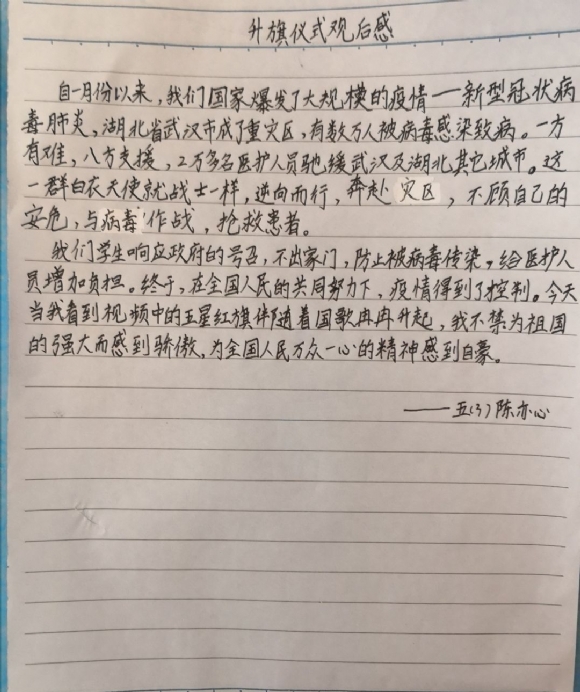 升旗仪式观后感
自一月份以来，我们国家爆发了大规模的疫情一新型冠状病
毒肺炎，湖北省武汉市成了重灾区，有数万人被病毒感染致病。一方
有难，八方支援，2万多名医护人员驰缓武汉及湖北其它城市。这
一群白衣天使就战士一样，逆向而行，奔赴灾区，不顾自己的
安危，与病毒作战，抢救患者。
我们学生响应政府的号召，不出家门，防止被病毒传染，给医护人
员增加负担。终于，在全国人民的共同努力下，疫情得到了控制。今天
当我看到视频中的五星红旗伴随着国歌冉冉升起，我不禁为祖国
的强大而感到骄傲，为全国人民万众一心的精神感到自豪。
——五(3)陈亦心